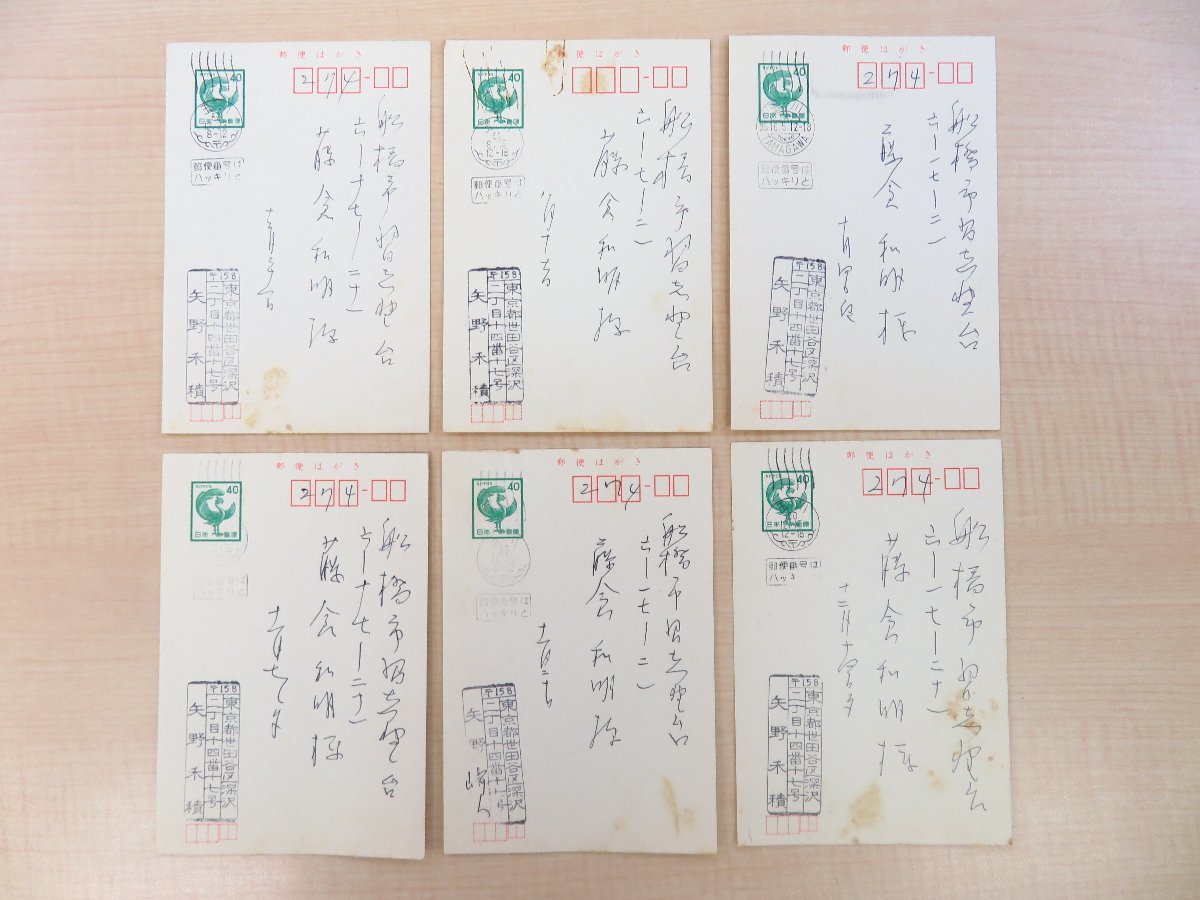 郵便はがき
NIPPON
40
日本郵便
274
8-12
郵便番号は
ハッキリと
船橋市習志野台
六ー十七ー二十一
藤倉和明様
〒158
東京都世田谷区深沢
二丁目十四番十七号
矢野禾積
郵便はがき
NIPPON
40
日本郵便
12-18
郵便番号は
ハッキリと
船橋市習志野台
六ー一七ー二一
藤倉和明様
〒158
東京都世田谷区深沢
二丁目十四番十七号
矢野禾積
郵便はがき
40
日本郵便
274
12-18
TAMAGAWA
郵便番号は
ハッキリと
船橋市習志野台
六ー一七ー二一
藤倉和明様
十月四日
〒158
東京都世田谷区深沢
二丁目十四番十七号
矢野禾積
郵便はがき
NIPPON
40
日本郵便
274
郵便番号は
ハッキリと
船橋市習志野台
六ー十七ー二十一
藤倉和明様
〒158
東京都世田谷区深沢
二丁目十四番十七号
矢野禾積
郵便はがき
NIPPON
40
日本郵便
274
郵便番号は
ハッキリと
船橋市習志野台
六ー一七ー二一
藤倉和明様
〒158
東京都世田谷区深沢
二丁目十四番十七号
矢野峰人
郵便はがき
40
日本郵便
274
12-18
郵便番号は
ハッキ
船橋市習志野台
六ー一七ー二十一
藤倉和明様
十二月十四日
〒158
東京都世田谷区深沢
二丁目十四番十七号
矢野禾積